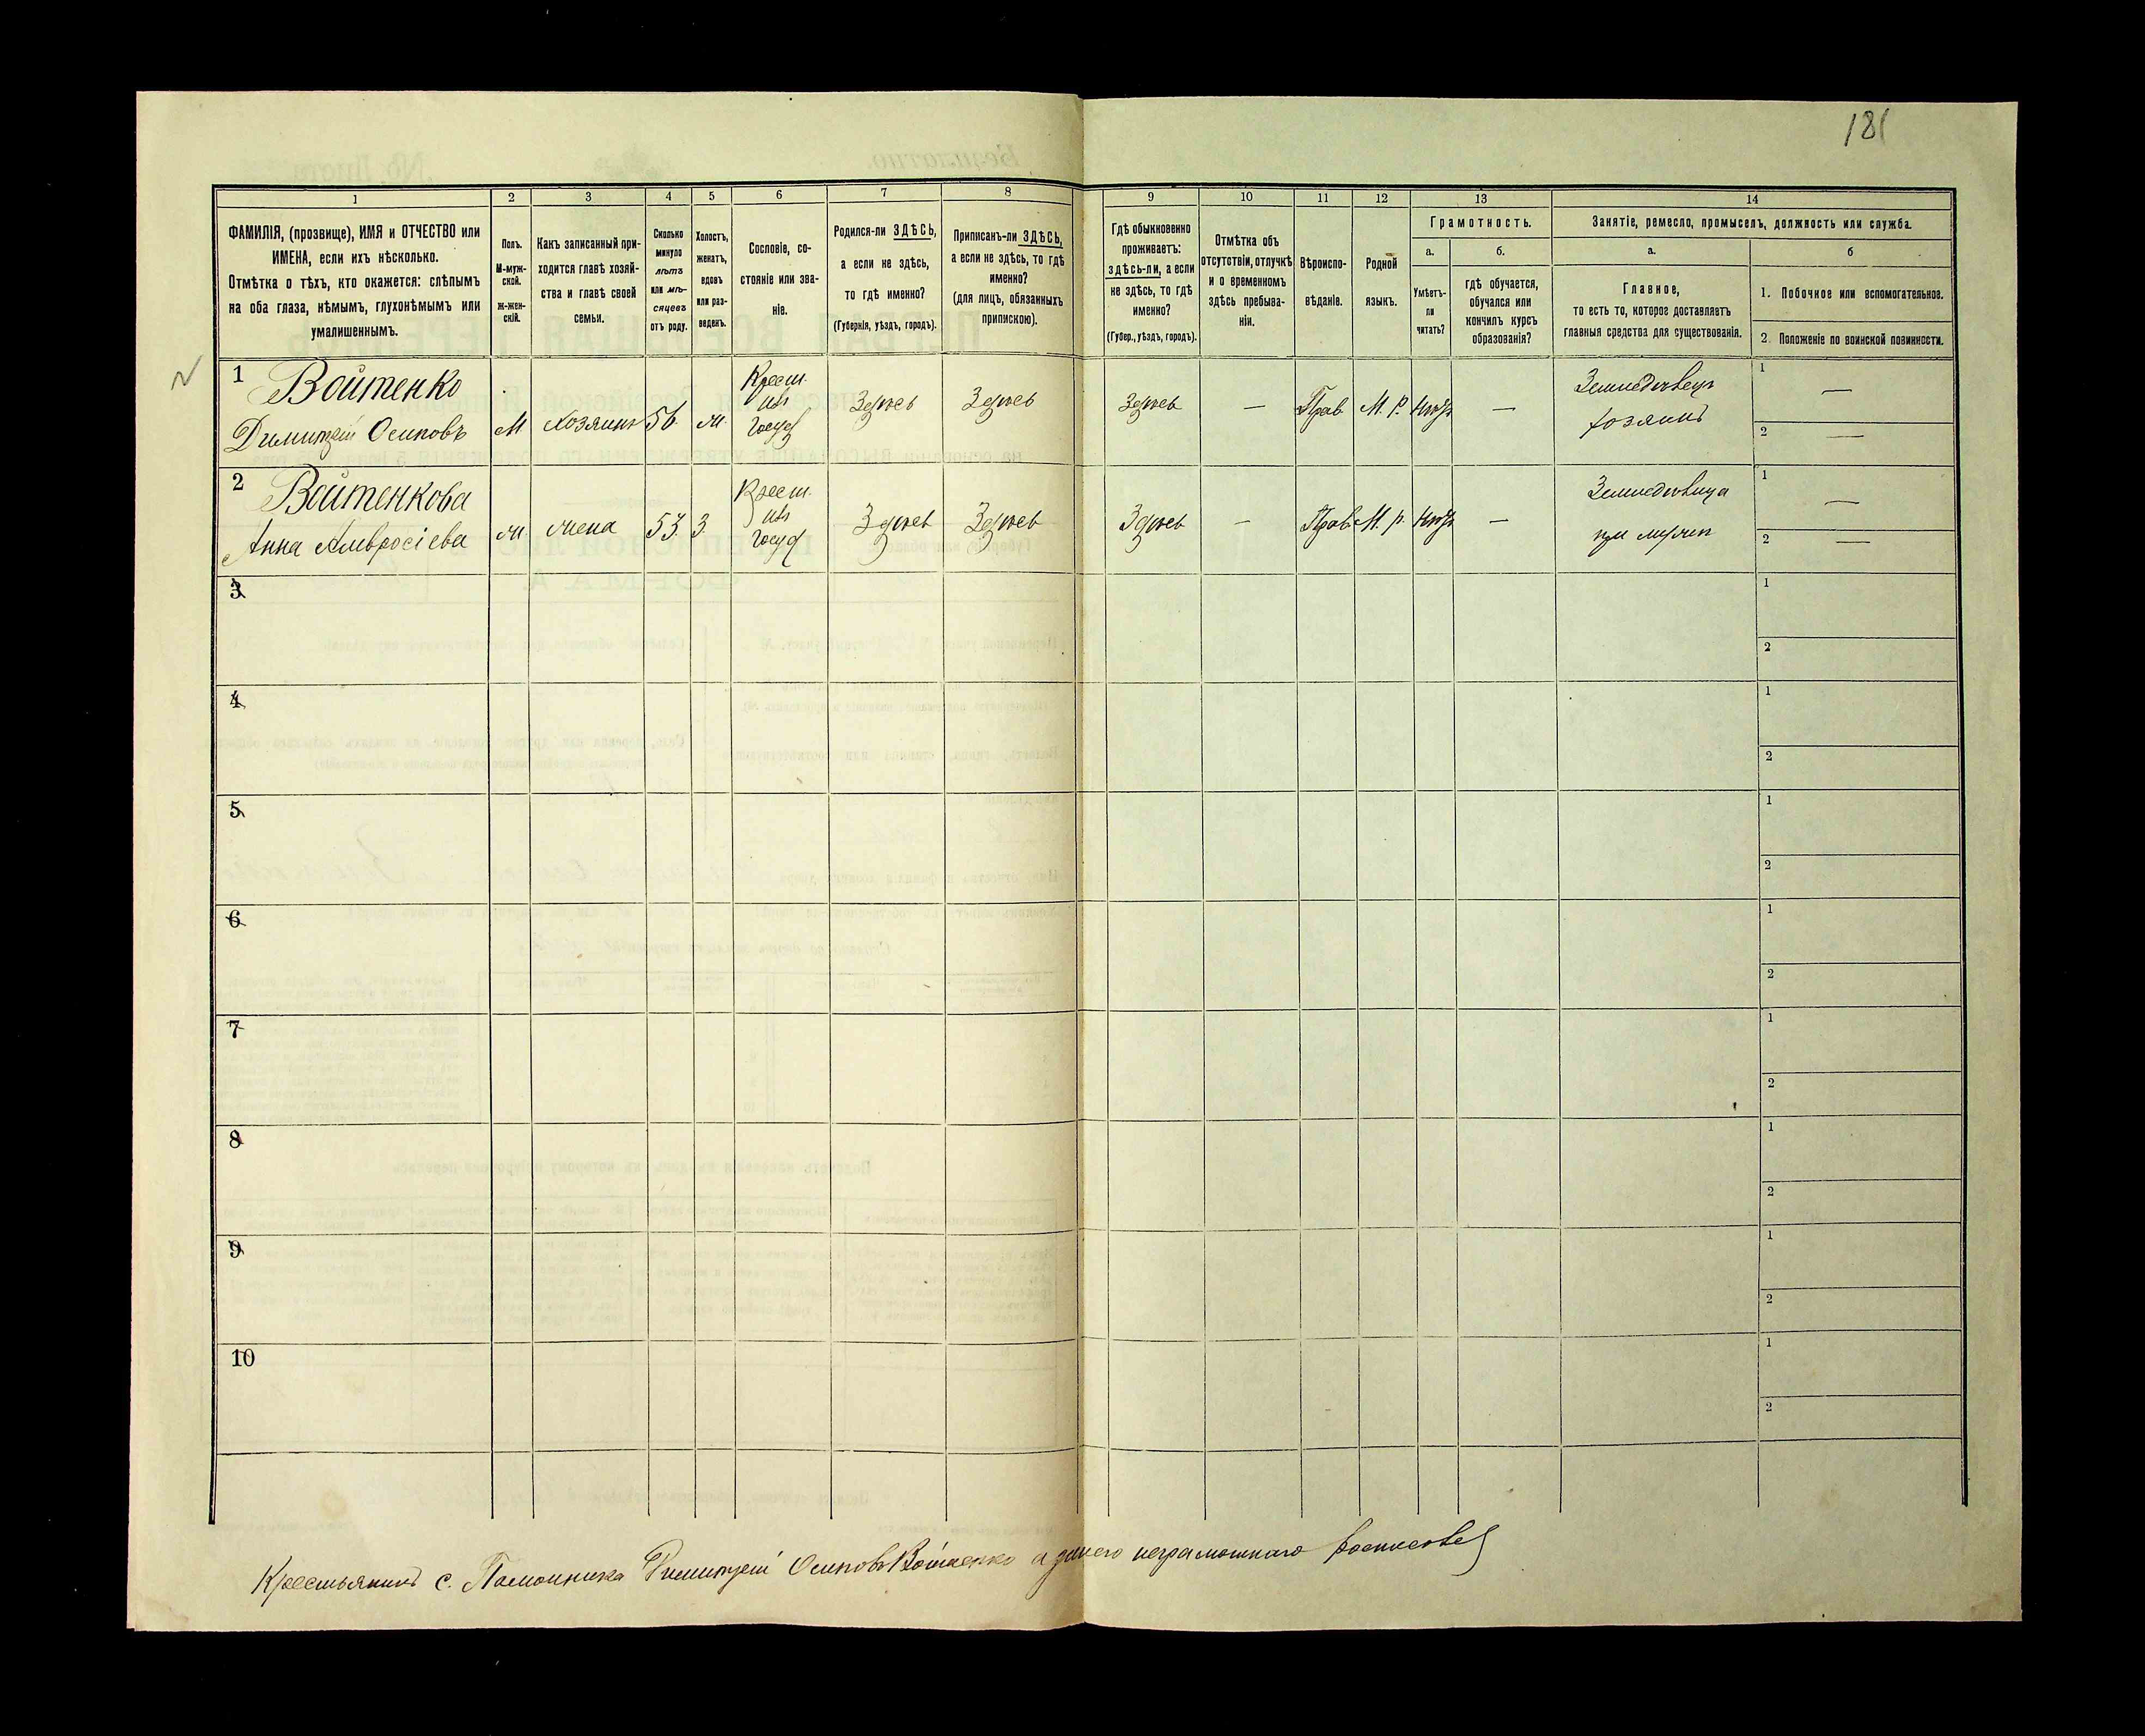 181
1
2
3
4
5
6
7
8
9
10
11
12
13
14
ФАМИЛІЯ, (прозвище), ИМЯ и ОТЧЕСТВО или
ИМЕНА, если ихъ нѣсколько.
Отмѣтка о тѣхъ, кто окажется: слѣпымъ
на оба глаза, нѣмымъ, глухонѣмымъ или
умалишеннымъ.
Полъ.
М-муж-
ской.
ж-жен-
скій.
Какъ записанный при-
ходится главѣ хозяй-
ства и главѣ своей
семьи.
Сколько
минуло
лѣтъ
или мѣ-
сяцевъ
отъ роду.
Холостъ,
женатъ,
вдовъ
или раз-
веденъ.
Сословіе, со-
стояніе или зва-
ніе.
Родился-ли ЗДѢСЬ,
а если не здѣсь,
то гдѣ именно?
(Губернія, уѣздъ, городъ).
Приписанъ-ли ЗДѢСЬ,
а если не здѣсь, то гдѣ
именно?
(для лицъ, обязанныхъ
припискою).
Гдѣ обыкновенно
проживаетъ:
здѣсь-ли, а если
не здѣсь, то гдѣ
именно?
(Губер., уѣздъ, городъ).
Отмѣтка объ
отсутствіи, отлучкѣ
и о временномъ
здѣсь пребыва-
ніи.
Вѣроиспо-
вѣданіе.
Родной
языкъ.
Грамотность.
а.
Умѣетъ-
ли
читать?
б.
гдѣ обучается,
обучался или
кончилъ курсъ
образованія?
Занятіе, ремесло, промыселъ, должность или служба.
а.
Главное,
то есть то, которое доставляетъ
главныя средства для существованія.
б
1. Побочное или вспомогательное.
2. Положеніе по воинской повинности.
1
Войтенко
Димитрій Осиповъ
М.
Хозяинъ
56.
Крест.
изъ
Госуд
Здѣсь
Здѣсь
Здѣсь
—
Прав.
М. р.
Нѣтъ
—
Земледѣлецъ
хозяинъ
1
—
2
—
2
Войтенкова
Анна Амвросіева
жена
53.
З.
Крест.
изъ
Госуд
Здѣсь
Здѣсь
Здѣсь
—
Прав.
М. р.
Нѣтъ
—
Земледѣлица
при мужѣ
1
—
2
—
3
1
2
4
1
2
5
1
2
6
1
2
7
1
2
8
1
2
9
1
2
10
1
2
Крестьянинъ с. Димитрій Осиповъ Войтенко а неграмотнаго